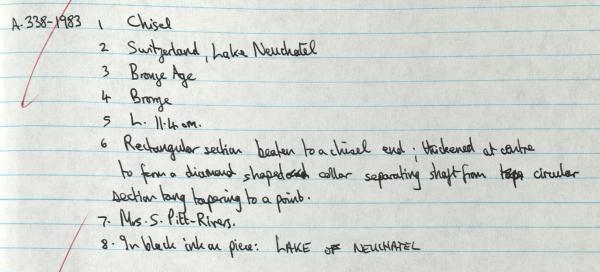 A.338-1983 1 Chisel
2 Switzerland, Lake Neuchatel
3 Bronze Age
4 Bronze
5 L. 11.4 cm.
6 Rectangular section beaten to a chisel end; thickened at centre
to form a diamond shaped collar separating shaft from circular
section tang tapering to a point.
7. Mrs. S. Pitt-Rivers.
8. In black ink on piece: LAKE OF NEUCHATEL